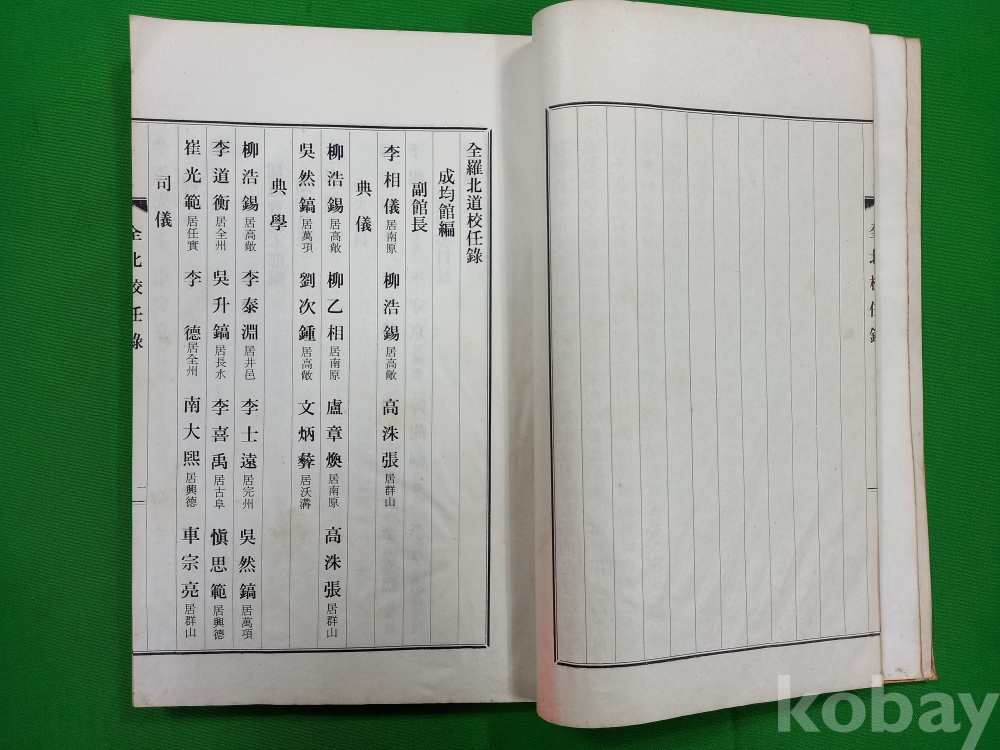 全羅北道校任錄
成均館編
副館長
李相儀居南原 柳浩錫居高敞 高洙張居群山
典儀
柳浩錫居高敞 柳乙相居南原 盧章煥居南原 高洙張居群山
吳然鎬居萬項 劉次鍾居高敞 文炳彜居沃溝
典學
柳浩錫居高敞 李泰淵居井邑 李士遠居完州 吳然鎬居萬項
李道衡居全州 吳升鎬居長水 李喜禹居古阜 愼思範居興德
崔光範居任實 李 德居全州 南大熙居興德 車宗亮居群山
司儀
全北校任錄
二
kobay